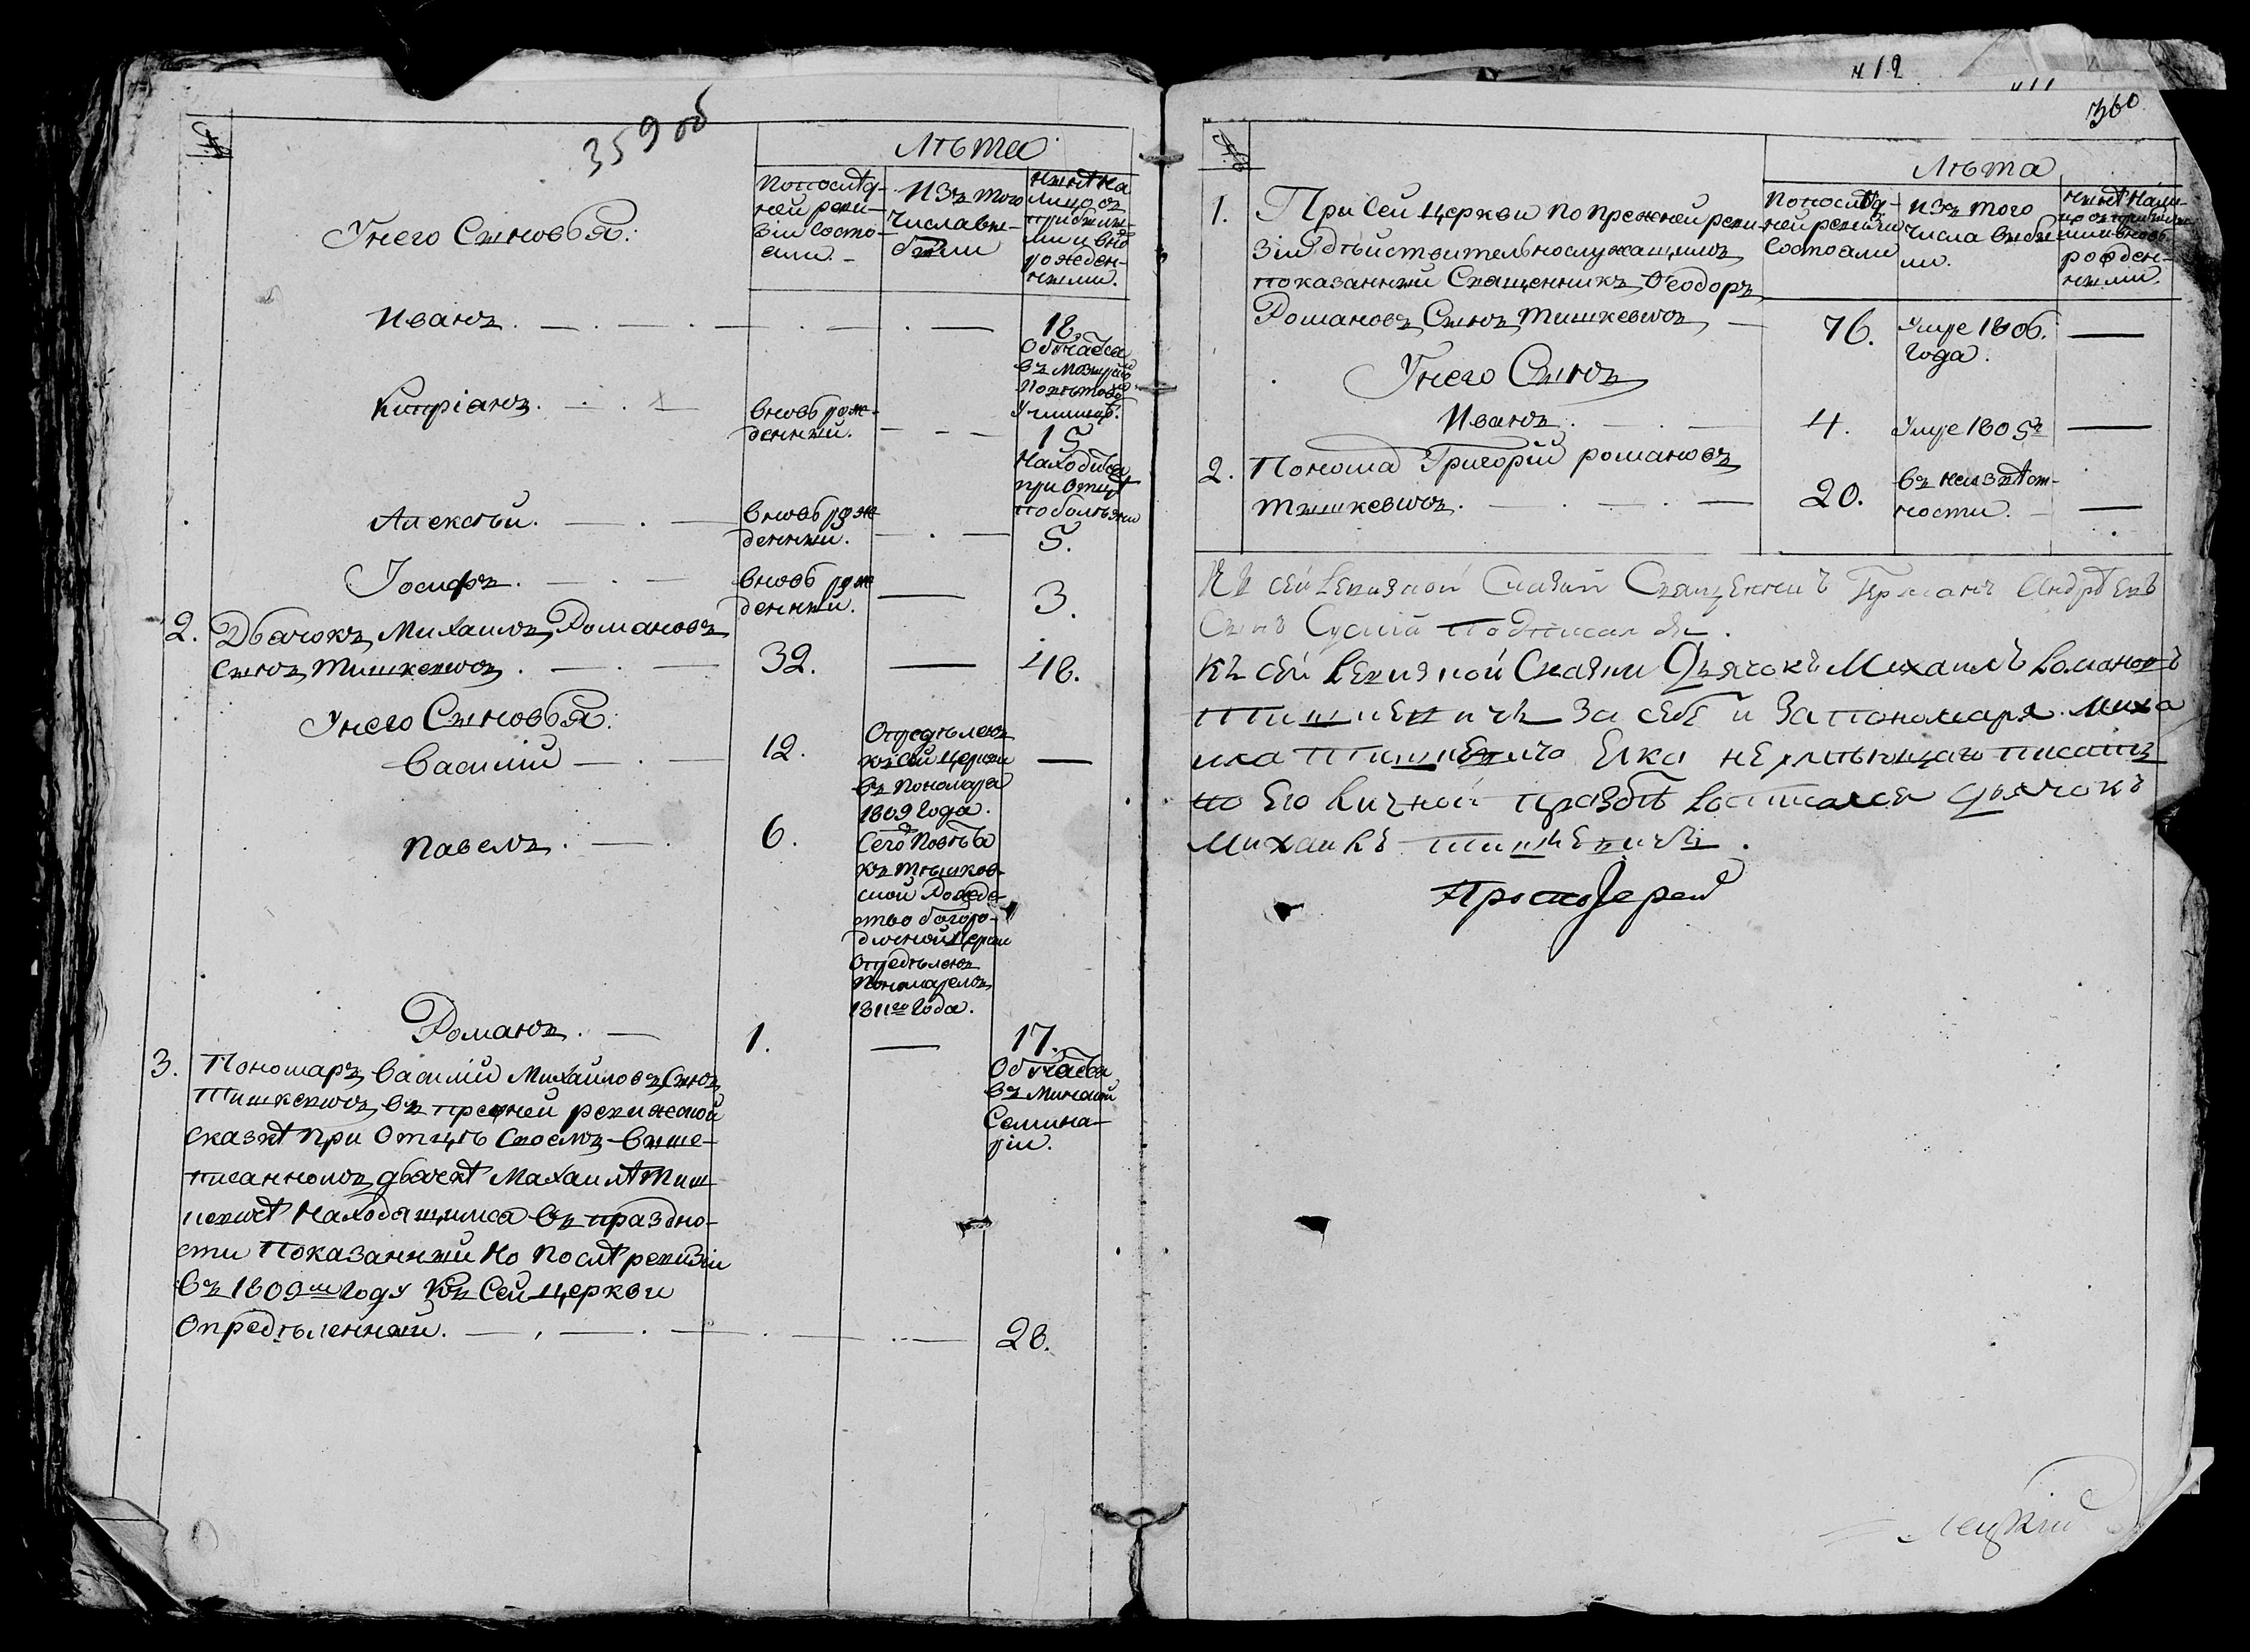 359 об
№
Лѣта
Попослѣд-
ней реви-
зіи состо-
яли. -
Изъ того
числа вы-
были
Нынѣ на
лицо съ
прибыв-
шими и внов
рожден-
ными.
У него Сыновья:
Иванъ.
18.
Обучается
въ
Повѣтово
училищѣ.
Кипріанъ.
вновь рож-
денный.
15
Находится
при Отцѣ
по болѣзни
Алексѣй.
вновь рож
денный.
5.
Іосифъ.
вновь рож
денный.
3.
2. Дьячокъ Михаилъ Романовъ
Сынъ Тишкевичъ.
32.
48.
У него Сыновья:
Василій
12.
Опредѣленъ
къ Сей Церкви
въ Пономаря
1809 года.
Павелъ.
6.
Сего Повѣта
къ
ской Рожде-
ство богоро-
дичной Церкви
Опредѣленъ
Пономаремъ
1811го года.
Романъ.
1.
17.
Обучается
въ Минской
Семина-
ріи.
3. Пономарь Василій Михайловъ Сынъ
Тишкевичъ въ прежней ревижской
сказкѣ при Отцѣ Своемъ выше-
писанномъ дьячкѣ Михаилѣ Тиш-
кевичѣ Находящимся въ праздно-
сти Показанный Но послѣ ревизіи
въ 1809мъ году къ Сей церкви
Опредѣленный.
28.
412
411
360
№
Лѣта
Попослѣд-
ней ревизіи
Состояли
изъ того
числа выбы
ли.
нынѣ нали-
цо съ прибыв
шими вновь
рожден-
ными.
1. При Сей церкви по прежней реви-
зіи дѣйствительнослужащимъ
показанный Священникъ Ѳеодоръ
Романовъ Сынъ Тишкевичъ,
76.
Умре 1806.
года.
У него Сынъ
Иванъ.
4.
Умре 1805г
2. Поноша Григорій романовъ
Тишкевичъ.
20.
въ неизвѣст-
ности.
Къ сей Ревизкой Сказки Священникъ Германъ Андреевъ
Сынъ Суский подписался.
Къ сей Ревизкой Сказки Дьячокъ Михаилъ Романовъ
Тишкевичъ за себе и за пономаря
Тишкевича неумѣющаго писать
по Его личной прозбѣ Росписался дьячокъ
Михаилъ Тишкевичъ.
Протоіерей